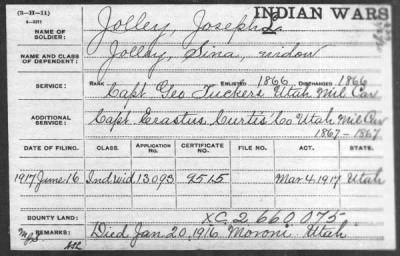 (3-H-11)
6-3277
INDIAN WARS
NAME OF SOLDIER: Jolley, Joseph L.
NAME AND CLASS OF DEPENDENT: Jolley, Sina, widow
SERVICE: RANK ENLISTED 1866 DISCHARGED 1866
Capt. Geo Tuckers Utah Mil Cav
ADDITIONAL SERVICE: Capt. Erastus Curtis Co Utah Mil Cav
1867-1867
DATE OF FILING. CLASS. APPLICATION No. CERTIFICATE No. FILE No. ACT. STATE.
1917 June 16 Ind wid 13093 9515 Mar. 4, 1917 Utah
BOUNTY LAND: XC 2 660 075
REMARKS: Died Jan 20, 1916 Moroni Utah